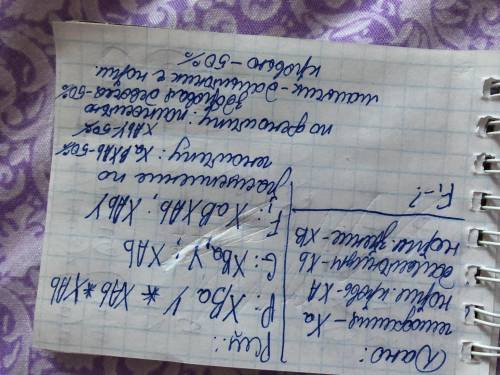 Дано:
гемофилия - Xa
норм. кровь XA
дальтонизм - Xb
норм зрение - XB
F₁-?
Реш:
P: XBa Y * XAb * XAb
G: XBa, Y; XAb
F₁: XaBXAb; XAbY
расщепление по
генотипу: XaBXAb-50%
XAbY-50%
по фенотипу: полностью
здоровая девочка-50%
мальчик - дальтоник с норм.
кровью - 50%